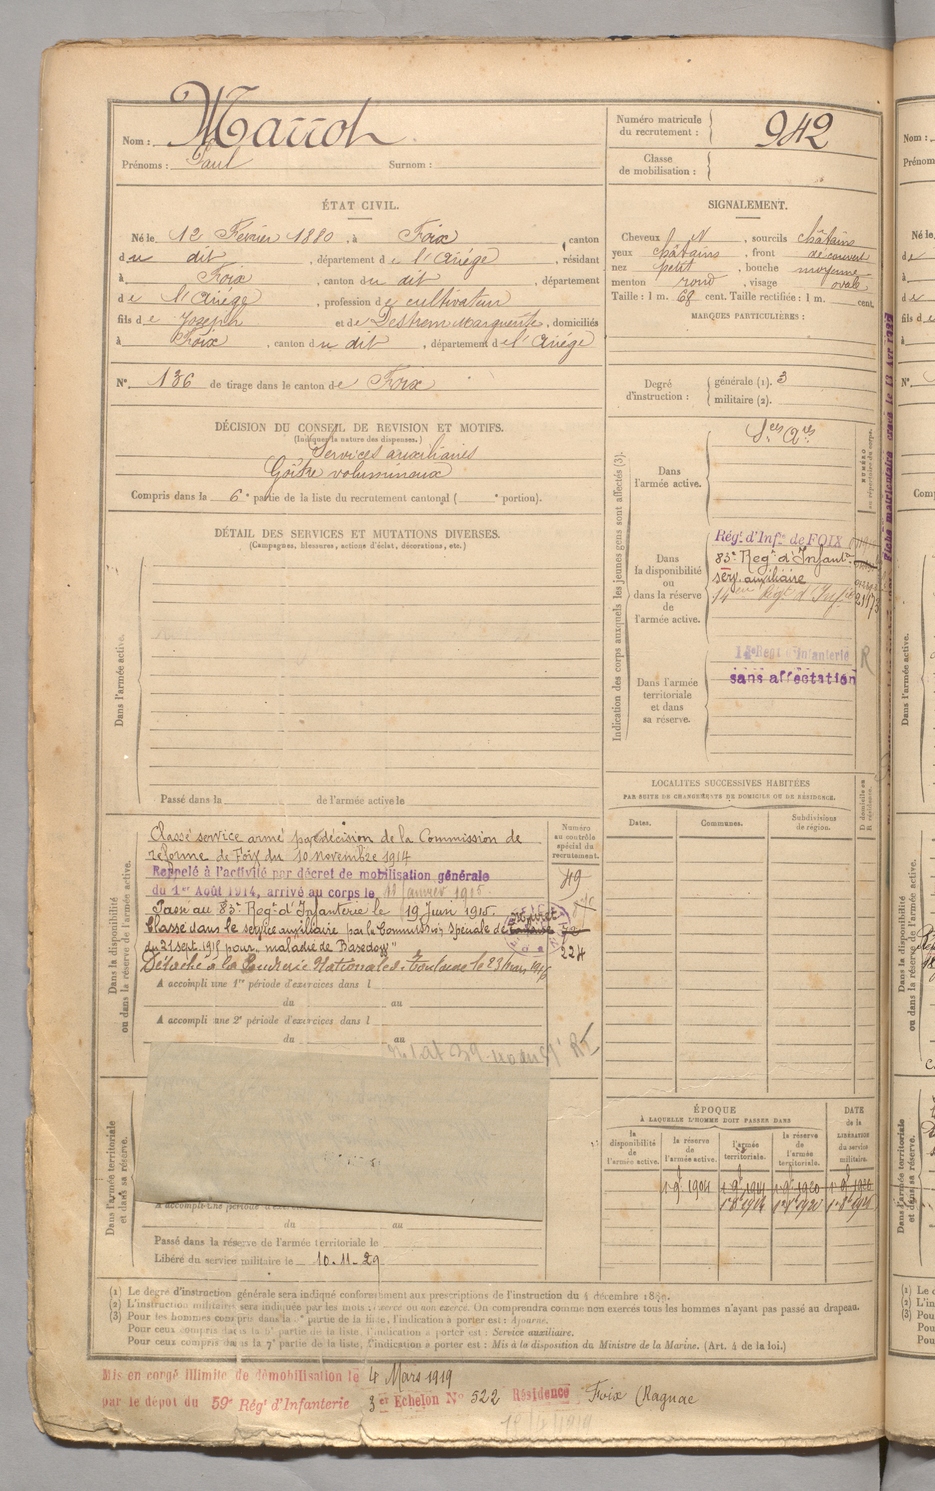 Nom : Marrot
Prénoms : Paul Surnom :
Numéro matricule du recrutement : 942
Classe de mobilisation :
ÉTAT CIVIL.
Né le 12 Février 1880, à Foix, canton
du dit, département de l'Ariège, résidant
à Foix, canton du dit, département
de l'Ariège, profession de cultivateur
fils de Joseph et de Destrem Marguerite, domiciliés
à Foix, canton du dit, département de l'Ariège
N° 136 de tirage dans le canton de Foix
SIGNALEMENT.
Cheveux N, sourcils châtains
yeux châtains, front découvert
nez petit, bouche moyenne
menton rond, visage ovale
Taille : 1 m. 68 cent. Taille rectifiée : 1 m. cent.
MARQUES PARTICULIÈRES :
Degré d'instruction : générale (1). 3
militaire (2).
DÉCISION DU CONSEIL DE REVISION ET MOTIFS.
(Indiquer la nature des dispenses.)
Services auxiliaires
Goître volumineux
Compris dans la 6e partie de la liste du recrutement cantonal ( e portion).
DÉTAIL DES SERVICES ET MUTATIONS DIVERSES.
(Campagnes, blessures, actions d'éclat, décorations, etc.)
Dans l'armée active.
Passé dans la de l'armée active le
Indication des corps auxquels les jeunes gens sont affectés (3).
NUMÉRO au répertoire du corps.
Dans l'armée active.
Ses Ares
Dans la disponibilité ou dans la réserve de l'armée active.
Régt d'Infie de FOIX
83e Regt d'Infantie
serv. auxiliaire
14eme Regt d'Infie
Dans l'armée territoriale et dans sa réserve.
14e Regt d'Infanterie R
sans affectation
LOCALITÉS SUCCESSIVES HABITÉES
PAR SUITE DE CHANGEMENTS DE DOMICILE OU DE RÉSIDENCE.
Dates. Communes. Subdivisions de région. D domicile ou R résidence.
Dans la disponibilité ou dans la réserve de l'armée active.
Numéro au contrôle spécial du recrutement.
Classé service armé par décision de la Commission de
réforme de Foix du 10 novembre 1914
Rappelé à l'activité par décret de mobilisation générale
du 1er Août 1914, arrivé au corps le Janvier 1915
Passé au 83e Regt d'Infanterie le 19 Juin 1915.
Classé dans le service auxiliaire par la Commission Spéciale de
du 21 sept. 1915 pour "maladie de Basedow"
Détaché à la Poudrerie Nationale Toulouse le 23 mars 1916
49
224
A accompli une 1re période d'exercices dans l
du au
A accompli une 2e période d'exercices dans l
du au
Dans l'armée territoriale et dans sa réserve.
A accompli une période d'exercices
du au
Passé dans la réserve de l'armée territoriale le
Libéré du service militaire le 10-11-29
ÉPOQUE
À LAQUELLE L'HOMME DOIT PASSER DANS
la disponibilité de l'armée active. la réserve de l'armée active. l'armée territoriale. la réserve de l'armée territoriale. DATE de la LIBÉRATION du service militaire.
(1) Le degré d'instruction générale sera indiqué conformément aux prescriptions de l'instruction du 4 décembre 1889.
(2) L'instruction militaire sera indiquée par les mots : exercé ou non exercé. On comprendra comme non exercés tous les hommes n'ayant pas passé au drapeau.
(3) Pour les hommes compris dans la e partie de la liste, l'indication à porter est : Ajourné.
Pour ceux compris dans la e partie de la liste, l'indication à porter est : Service auxiliaire.
Pour ceux compris dans la 7e partie de la liste, l'indication à porter est : Mis à la disposition du Ministre de la Marine. (Art. 4 de la loi.)
Mis en congé illimité de démobilisation le 4 Mars 1919
par le dépot du 59e Régt d'Infanterie 3er Echelon N° 522 Résidence Foix (Ragnac